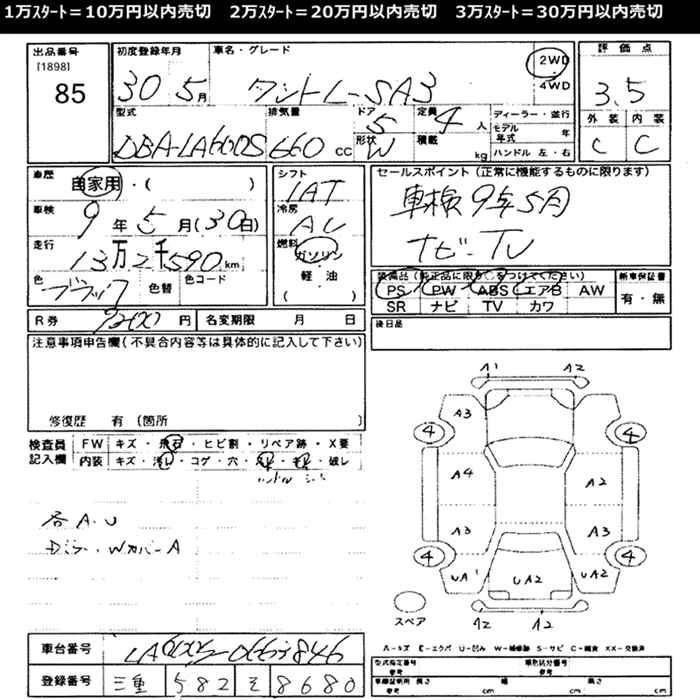 1万ｽﾀｰﾄ＝10万円以内売切 2万ｽﾀｰﾄ＝20万円以内売切 3万ｽﾀｰﾄ＝30万円以内売切
出品番号 初度登録年月 車名・グレード 2WD 評価点
[1898] 85 30 5月 タントL-SA3 4WD 3.5
型式 排気量 ドア 5 定員 4人 ディーラー・並行 外装 内装
DBA-LA600S 660cc 形状 W 積載 kg モデル年式 年 C C
ハンドル 左・右
車歴 自家用・( ) シフト IAT セールスポイント(正常に機能するものに限ります)
車検 9年5月(30日) 冷房 AC 車検9年5月
走行 13万2千590km 燃料 ガソリン ナビ-TV
色 ブラック 色替 色コード 軽油 ( ) 装備品(純正品に限り○をつけてください) 新車保証書
PS PW ABS エアB AW 有・無
SR ナビ TV カワ
R券 円 名変期限 月 日 後日品
注意事項申告欄(不具合内容等は具体的に記入して下さい)
修復歴 有(箇所 )
検査員記入欄 FW キズ・飛石・ヒビ割・リペア跡・X要
内装 キズ・汚レ・コゲ・穴・スレ・キレ・破レ
各A.U
A1 A2
A3
4 4
A4 A2
A3 A3
4 4
UA1 UA2 UA2
スペア
A2 A2
A-キズ E-エクボ U-凹み W-補修跡 S-サビ C-腐食 XX-交換済
車台番号 LA600S-0663846
登録番号 三重 582 そ 8680
型式指定番号 参考 類別区分番号 参考
車検証明用 長さ 参考 cm 幅 cm 高さ cm